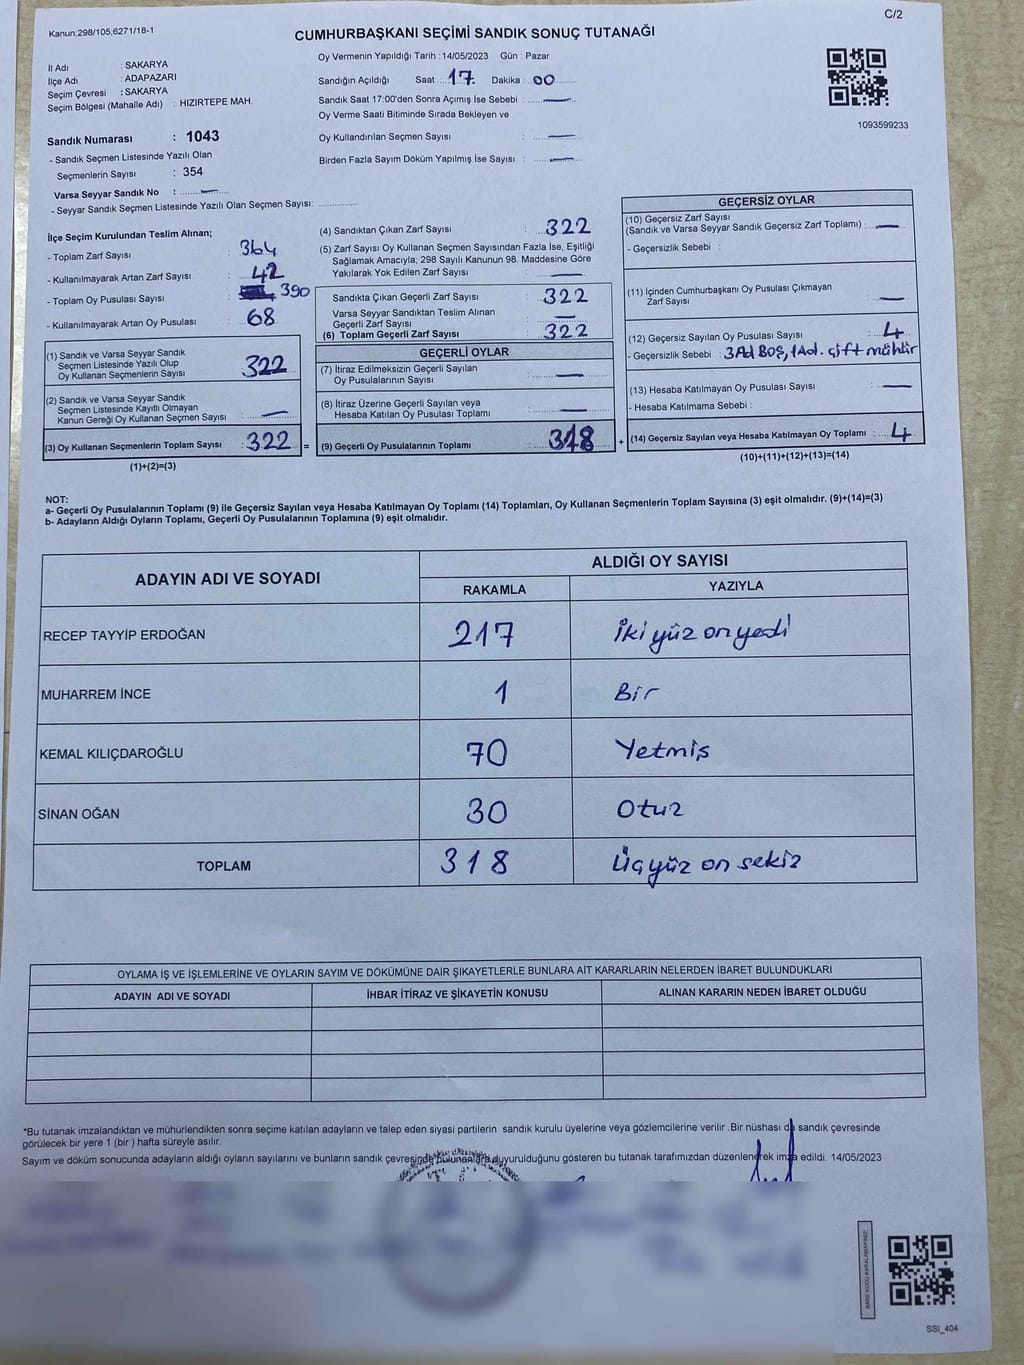 C/2
Kanun;298/105;6271/18-1
CUMHURBAŞKANI SEÇİMİ SANDIK SONUÇ TUTANAĞI
İl Adı : SAKARYA
İlçe Adı : ADAPAZARI
Seçim Çevresi : SAKARYA
Seçim Bölgesi (Mahalle Adı) : HIZIRTEPE MAH.
Sandık Numarası : 1043
- Sandık Seçmen Listesinde Yazılı Olan
Seçmenlerin Sayısı : 354
Varsa Seyyar Sandık No : —
- Seyyar Sandık Seçmen Listesinde Yazılı Olan Seçmen Sayısı: ............
Oy Vermenin Yapıldığı Tarih : 14/05/2023 Gün : Pazar
Sandığın Açıldığı Saat 17 Dakika 00
Sandık Saat 17:00'den Sonra Açımış İse Sebebi : —
Oy Verme Saati Bitiminde Sırada Bekleyen ve
Oy Kullandırılan Seçmen Sayısı : —
Birden Fazla Sayım Döküm Yapılmış İse Sayısı : —
1093599233
İlçe Seçim Kurulundan Teslim Alınan;
- Toplam Zarf Sayısı : 364
- Kullanılmayarak Artan Zarf Sayısı : 42
- Toplam Oy Pusulası Sayısı : 390
- Kullanılmayarak Artan Oy Pusulası : 68
(1) Sandık ve Varsa Seyyar Sandık
Seçmen Listesinde Yazılı Olup
Oy Kullanan Seçmenlerin Sayısı : 322
(2) Sandık ve Varsa Seyyar Sandık
Seçmen Listesinde Kayıtlı Olmayan
Kanun Gereği Oy Kullanan Seçmen Sayısı : —
(3) Oy Kullanan Seçmenlerin Toplam Sayısı : 322 =
(1)+(2)=(3)
(4) Sandıktan Çıkan Zarf Sayısı : 322
(5) Zarf Sayısı Oy Kullanan Seçmen Sayısından Fazla İse, Eşitliği
Sağlamak Amacıyla; 298 Sayılı Kanunun 98. Maddesine Göre
Yakılarak Yok Edilen Zarf Sayısı : —
Sandıkta Çıkan Geçerli Zarf Sayısı : 322
Varsa Seyyar Sandıktan Teslim Alınan
Geçerli Zarf Sayısı : —
(6) Toplam Geçerli Zarf Sayısı : 322
GEÇERLİ OYLAR
(7) İtiraz Edilmeksizin Geçerli Sayılan
Oy Pusulalarının Sayısı : —
(8) İtiraz Üzerine Geçerli Sayılan veya
Hesaba Katılan Oy Pusulası Toplamı : —
(9) Geçerli Oy Pusulalarının Toplamı : 318 +
GEÇERSİZ OYLAR
(10) Geçersiz Zarf Sayısı
(Sandık ve Varsa Seyyar Sandık Geçersiz Zarf Toplamı) : —
- Geçersizlik Sebebi :
(11) İçinden Cumhurbaşkanı Oy Pusulası Çıkmayan
Zarf Sayısı : —
(12) Geçersiz Sayılan Oy Pusulası Sayısı : 4
- Geçersizlik Sebebi : 3Ad Boş, 1Ad. çift mühür
(13) Hesaba Katılmayan Oy Pusulası Sayısı : —
- Hesaba Katılmama Sebebi :
(14) Geçersiz Sayılan veya Hesaba Katılmayan Oy Toplamı : 4
(10)+(11)+(12)+(13)=(14)
NOT:
a- Geçerli Oy Pusulalarının Toplamı (9) ile Geçersiz Sayılan veya Hesaba Katılmayan Oy Toplamı (14) Toplamları, Oy Kullanan Seçmenlerin Toplam Sayısına (3) eşit olmalıdır. (9)+(14)=(3)
b- Adayların Aldığı Oyların Toplamı, Geçerli Oy Pusulalarının Toplamına (9) eşit olmalıdır.
ADAYIN ADI VE SOYADI ALDIĞI OY SAYISI
RAKAMLA YAZIYLA
RECEP TAYYİP ERDOĞAN 217 İki yüz on yedi
MUHARREM İNCE 1 Bir
KEMAL KILIÇDAROĞLU 70 Yetmiş
SİNAN OĞAN 30 Otuz
TOPLAM 318 Üçyüz on sekiz
OYLAMA İŞ VE İŞLEMLERİNE VE OYLARIN SAYIM VE DÖKÜMÜNE DAİR ŞİKAYETLERLE BUNLARA AİT KARARLARIN NELERDEN İBARET BULUNDUKLARI
ADAYIN ADI VE SOYADI İHBAR İTİRAZ VE ŞİKAYETİN KONUSU ALINAN KARARIN NEDEN İBARET OLDUĞU
*Bu tutanak imzalandıktan ve mühürlendikten sonra seçime katılan adayların ve talep eden siyasi partilerin sandık kurulu üyelerine veya gözlemcilerine verilir .Bir nüshası da sandık çevresinde
görülecek bir yere 1 (bir ) hafta süreyle asılır.
Sayım ve döküm sonucunda adayların aldığı oyların sayılarını ve bunların sandık çevresinde bulunanlara duyurulduğunu gösteren bu tutanak tarafımızdan düzenlenerek imza edildi. 14/05/2023
SSI_404